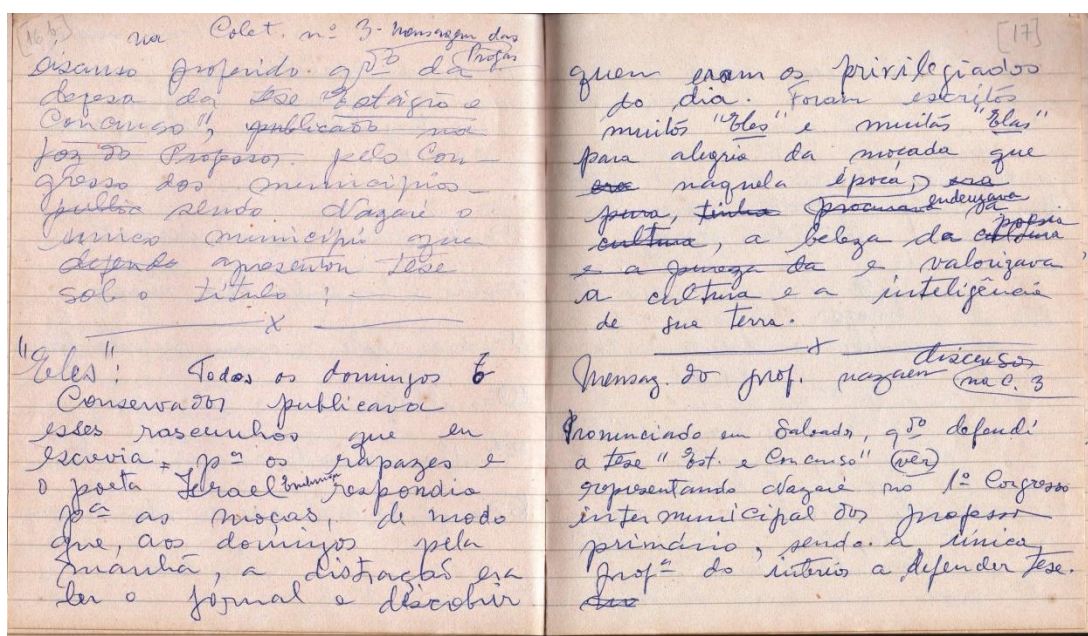 [16 b] na Colet. nº 3 - Mensagem das
Profas
Discurso proferido. qdo da
defesa da tese Estágio e
Concurso", publicado na
Voz do Professor. pelo Con-
gresso dos municípios -
public sendo Nazaré o
único município que
defende apresentou tese
sob o título :
x
"Eles": Todos os domingos
Conservador publicava
esses rascunhos que eu
escrevia pª os rapazes e
o poeta Israel respondia
pª as moças, de modo
que, aos domingos pela
manhã, a distração era
ler o jornal e descobrir
[17]
quem eram os privilegiados
do dia. Foram escritos
muitos "Eles" e muitas "Elas"
para alegria da moçada que
era naquela época, era
pura, tinha procurava endeuzava já
cultura, a beleza da cultura poesia
e a pureza da e valorizava
a cultura e a inteligência
de sua terra.
x
discursos
Mensag. do prof. nazaren (na C. 3
Pronunciado em Salvador, qdo defendi
a tese "Est. e Concurso" (ver)
representando Nazaré no 1º Congresso
intermunicipal dos professor
primário, sendo a única
profª do interior a defender tese.